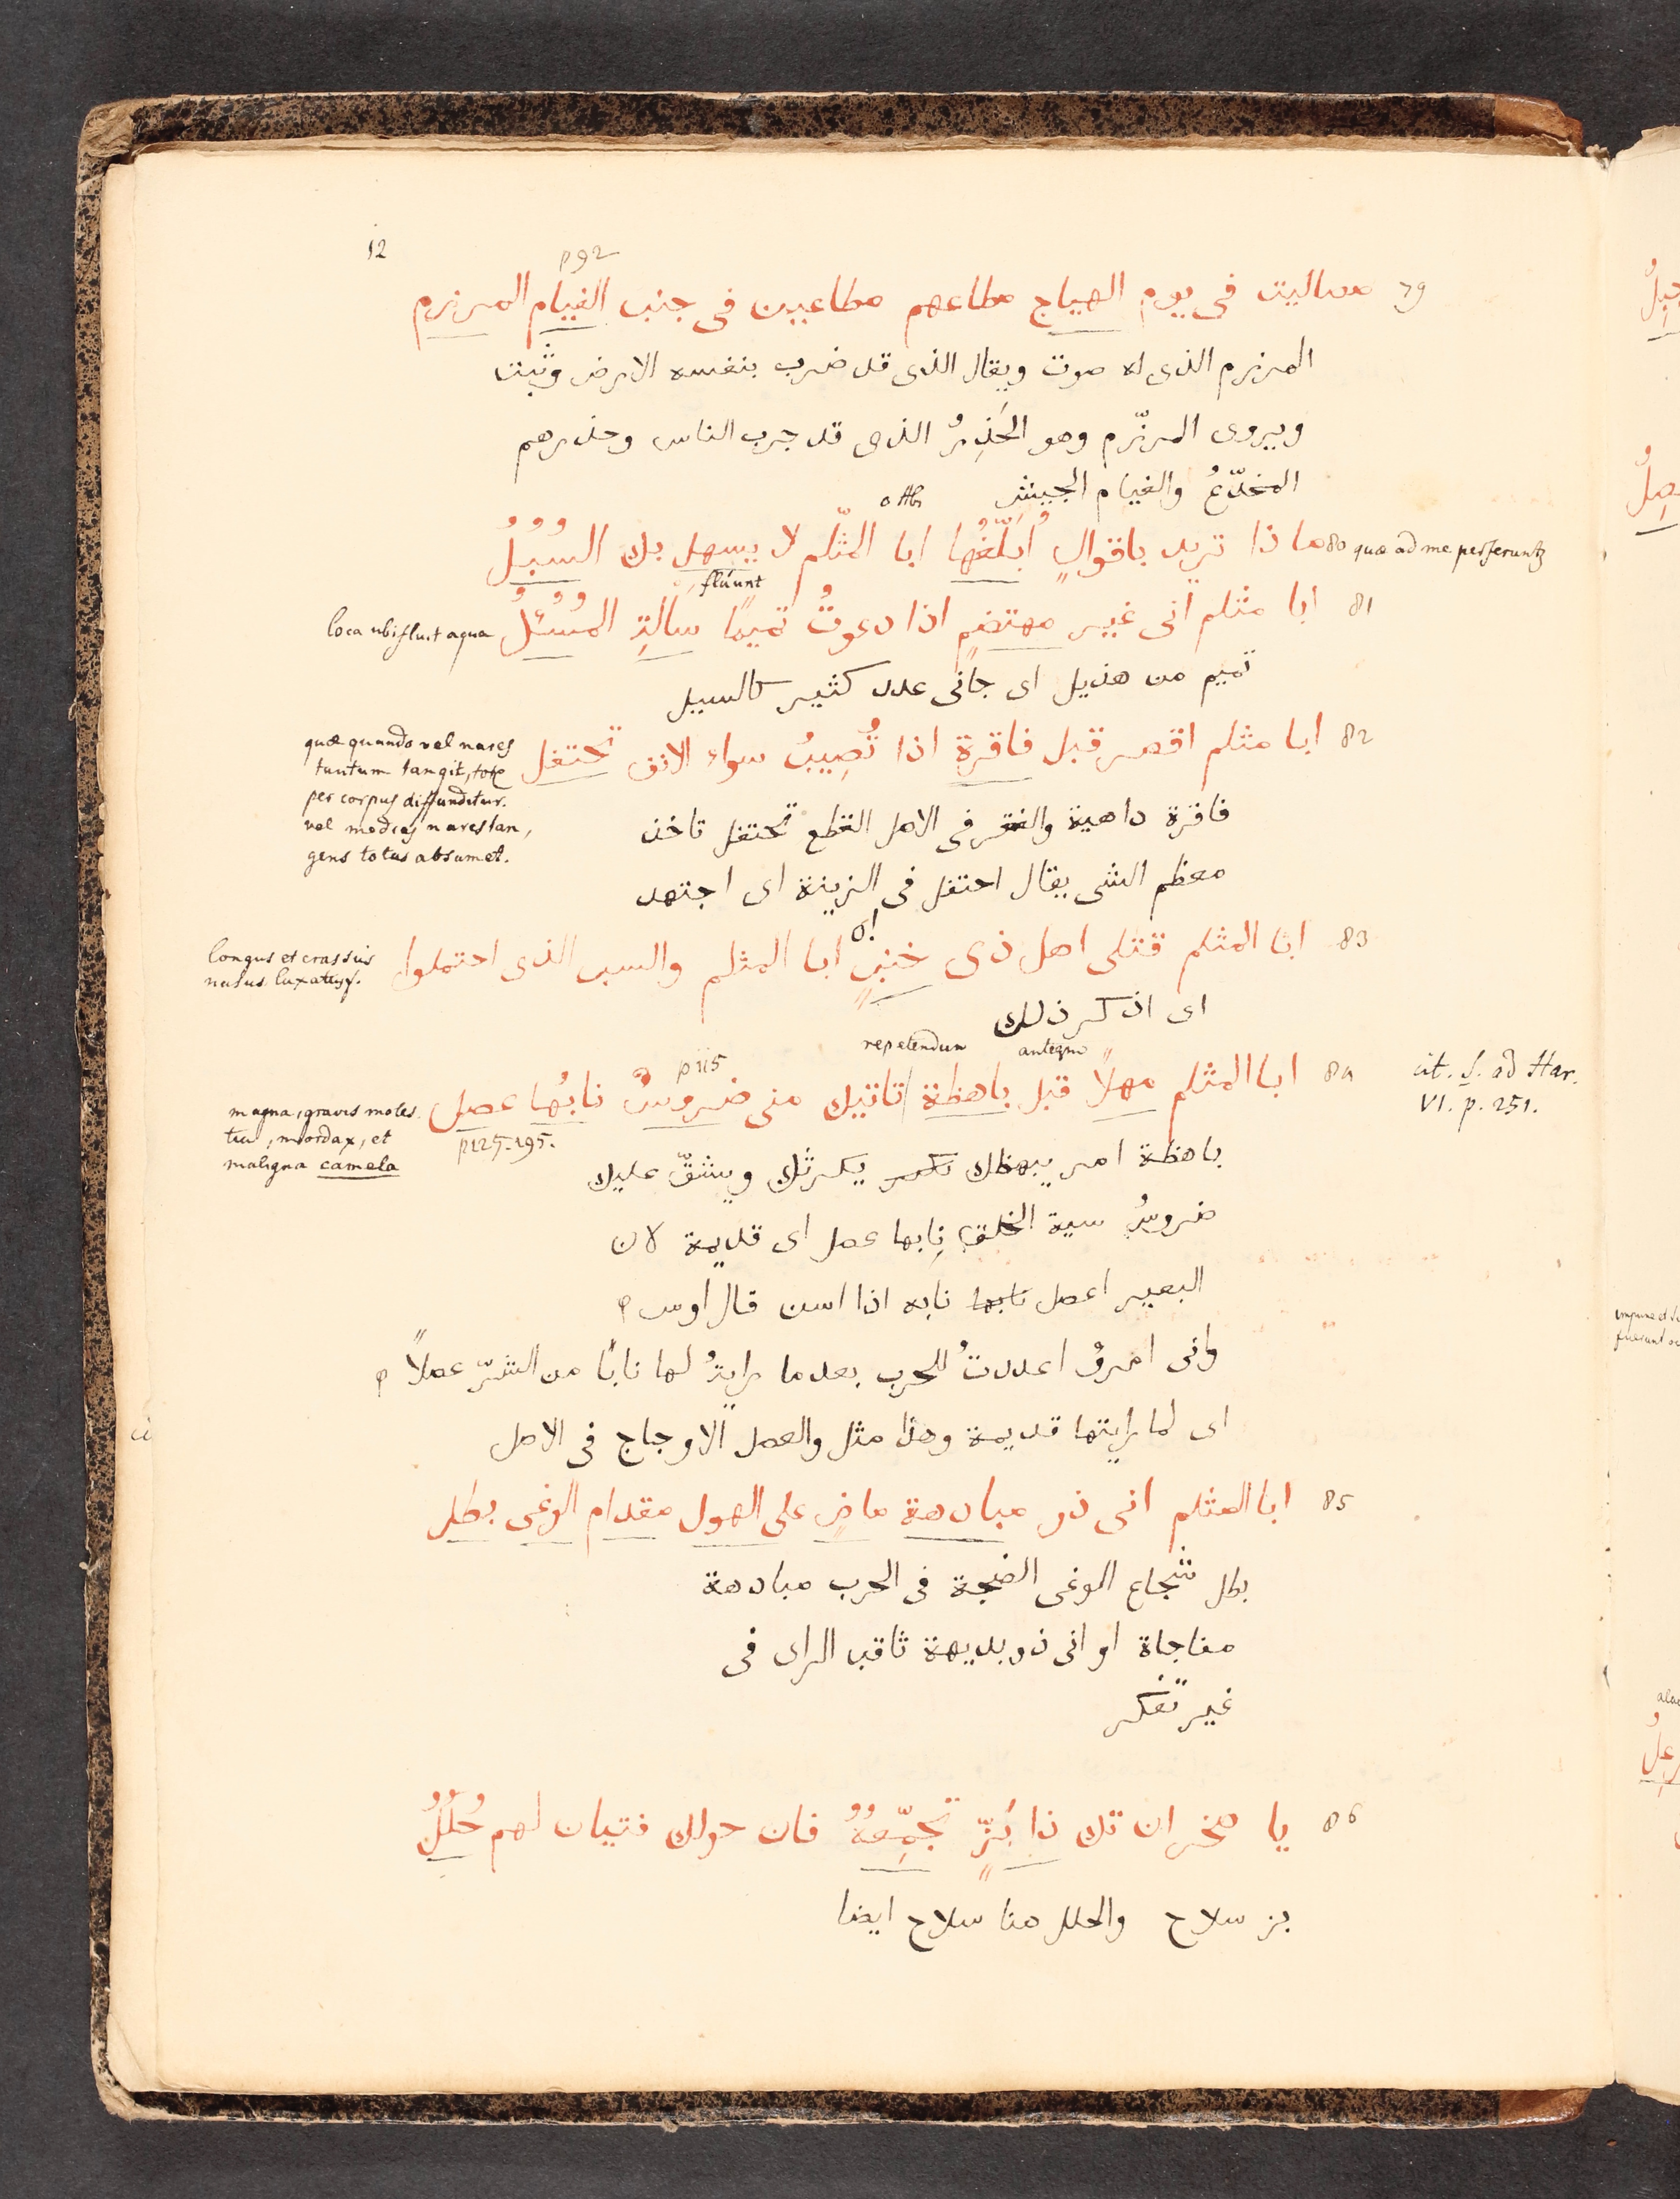 12
p92
79 مصاليت فى يوم الهياج مطاعهم مطاعين فى جنب الفيام المرزم
المرزم الذى له صوت ويقال الذى قد ضرب بنفسه الارض وثبت
ويروى المرزّم وهو الحَذِرُ الذى قد جرب الناس وحذرهم
المخدّعُ والفيام الجيش
80 ماذا تريد باقوالٍ اُبَلَّغُها ابا المثّلم لا يسهل بك السُبُلُ
quæ ad me perferuntur
fluunt
81 ابا مثلم انى غير مهتضمٍ اذا دعوتُ تميمًا سالتِ المُسُئلُ
loca ubi fluit aqua
تميم من هذيل اى جانى عدد كثير كالسيل
82 ابا مثلم اقصر قبل فاقرة اذا تُصِيبُ سواء الانف تحتفل
quæ quando vel nares
tantum tangit, toto
per corpus diffunditur.
vel medias nares tan,
gens totus absumet.
فاقرة داهية والفقر فى الاصل القطع تحتفل تاخذ
معظم الشى يقال احتفل فى الزينة اى اجتهد
83 ابا المثلم قتلى اهل ذى خنبٍ ابا المثلم والسبى الذى احتملوا
longus et crassus
nasus luxatus
اى اذكر ذلك
repetendum
antequam
84 ابا المثلم مهلاً قبل باهظة تاتيك منى ضروسٌ نابُها عصل
p115
p125.195.
cit. S. ad Har.
VI. p. 251.
magna, gravis moles
tua, mordax, et
maligna camela
باهظة امر يبهظك يكرثك ويشقّ عليك
ضروسُ سية الخلق نابها عصل اى قديمة لان
البعير اعصل نابه اذا اسن قال اوس
وانى امرؤٌ اعددتُ للحرب بعدما رايتُ لها نابًا من الشرّ عصلاً
اى لما رايتها قديمة وهذا مثل والعصل الاوجاج فى الاصل
85 ابا المثلم انى ذو مبادهة ماضٍ على الهول مقدام الوغى بطل
بطل شجاع الوغى الضجة فى الحرب مبادهة
مفاجاة او انى ذو بديهة ثاقب الراى فى
غير تفكر
86 يا صخر ان تك ذا بَزٍّ تجمِّعُهُ فان حولك فتيان لهم حُلَلُ
بز سلاح والحلل هنا سلاح ايضا